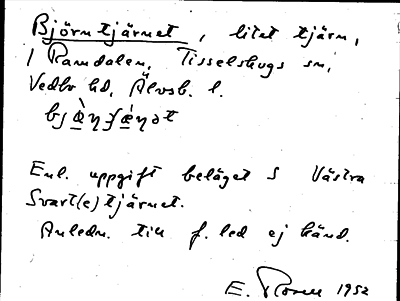 Björntjärnet, litet tjärn,
i Ramdalen, Tisselskogs sn,
Vedbo hd, Älvsb. l.
Enl. uppgift beläget S Västra
Svart(e)tjärnet.
Anledn. till f. led ej känd.
E. Rosell 1952